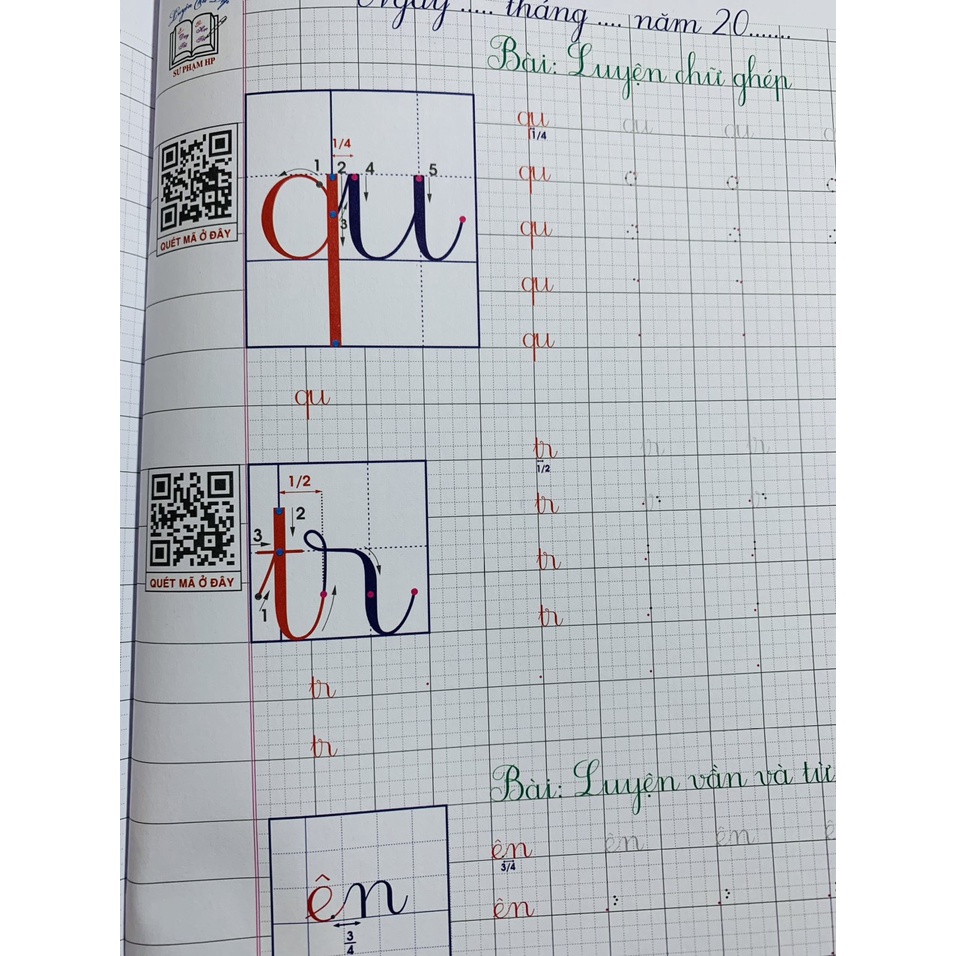 Ngày ..... tháng .... năm 20.......
SƯ PHẠM HP
Bài: Luyện chữ ghép
1/4
1 2 4 5
3
QUÉT MÃ Ở ĐÂY
qu qu qu
1/4
qu
qu
qu
qu
qu
qu
1/2
2
3
1
tr
QUÉT MÃ Ở ĐÂY
tr tr tr
1/2
tr
tr
tr
tr
tr
Bài: Luyện vần và từ
ên
3/4
ên ên ên
3/4
ên